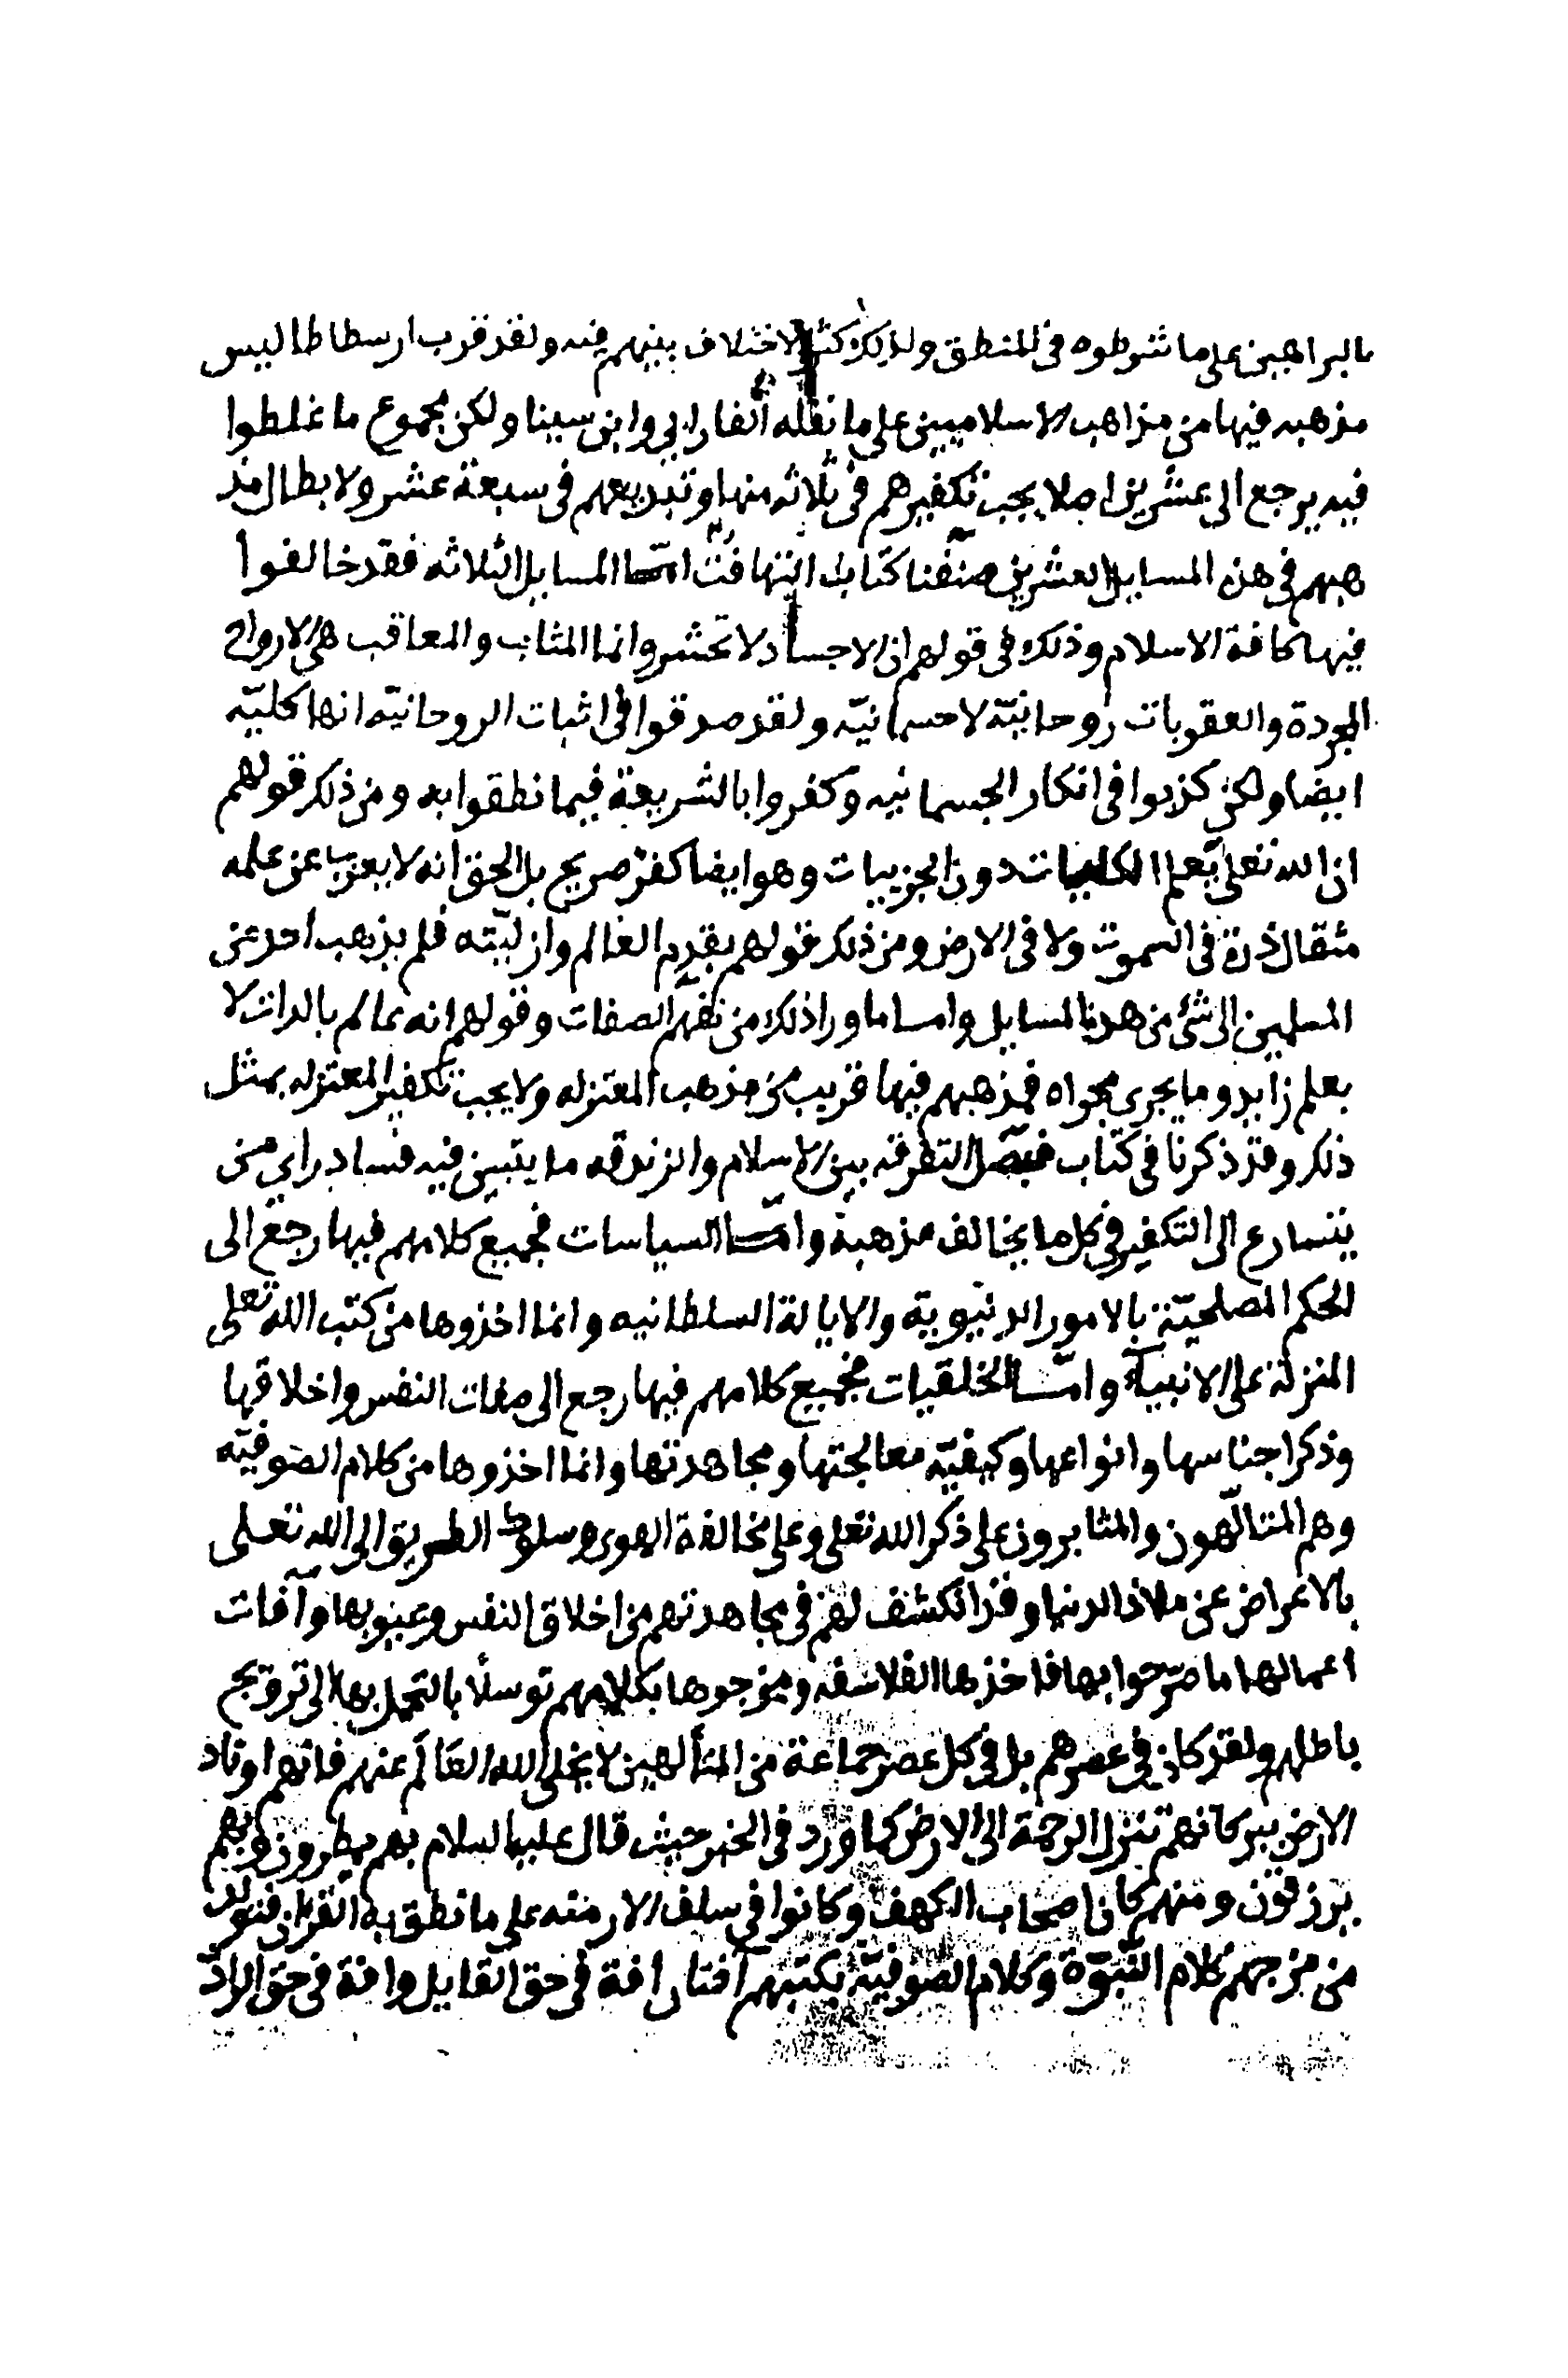 بالبراهين على ما شرطوه في المنطق ولذلك كثر الاختلاف بينهم فيه ولقد قرب ارسطاطاليس
مذهبه فيها من مذاهب الاسلاميين على ما نقله الفارابي وابن سينا ولكن مجموع ما غلطوا
فيه يرجع الى عشرين اصلا يجب تكفيرهم في ثلاثه منها وتبديعهم في سبعة عشر ولابطال مذ
هبهم في هذه المسايل العشرين صنفنا كتاب التهافت اما المسايل الثلاثه فقد خالفوا
فيها كافة الاسلام وذلك في قولهم ان الاجساد لا تحشر وانما المثاب والمعاقب هي الارواح
المجردة والعقوبات روحانيّة لا جسمانيّه ولقد صدقوا في اثبات الروحانيّه انها كليّه
ايضا ولكن كذبوا في انكار الجسمانيه وكفروا بالشريعة فيما نطقوا به ومن ذلك قولهم
ان الله تعلى يعلم الكليات دون الجزييات وهو ايضا كفر صريح بل الحق انه لا يعزب عن علمه
مثقال ذرة في السموت ولا في الارض ومن ذلك قولهم بقدم العالم وازليّته فلم يذهب احد من
المسلمين الى شئ من هذه المسايل واما ما ورا ذلك من نفيهم الصفات وقولهم انه عالم بالذات لا
بعلم زايد وما يجري مجراه فمذهبهم فيها قريب من مذهب المعتزله ولا يجب تكفير المعتزله بمثل
ذلك وقد ذكرنا في كتاب فيصل التفرقه بين الاسلام والزندقه ما يتبين فيه فساد راي من
يتسارع الى التكفير في كل ما يخالف مذهبه واما السياسات فجميع كلامهم فيها رجع الى
الحكم المصلحيّة بالامور الدنيوية والايالة السلطانيه وانما اخذوها من كتب الله تعلى
المنزلة على الانبيآء وامّا الخلقيات فجميع كلامهم فيها رجع الى صفات النفس واخلاقها
وذكر اجناسها وانواعها وكيفيّه معالجتها ومجاهدتها وانما اخذوها من كلام الصوفيّه
وهم المتالّهون والمثابرون على ذكر الله تعلى وعلى مخالفة الهوى وسلوك الطريق الى الله تعلى
بالاعراض عن ملاذ الدنيا وقد انكشف لهم في مجاهدتهم من اخلاق النفس وعيوبها وآفات
اعمالها ما صرّحوا بها فاخذها الفلاسفه ومزجوها بكلامهم توسلًا بالتجمل بها الى ترويج
باطلهم ولقد كان في عصرهم بل في كل عصر جماعة من المتألهين لا يخلي الله العالم عنهم فانهم اوتاد
الارض ببركاتهم تنزل الرحمة الى الارض كما ورد في الخبر حيث قال عليه السلام بهم يمطرون وبهم
يرزقون ومنهم كان اصحاب الكهف وكانوا في سلف الازمنه على ما نطق به القران فتولد
من مزجهم كلام النّبوّة وكلام الصوفيّة بكتبهم آفتان افة في حق القايل وافة في حق الرادّ